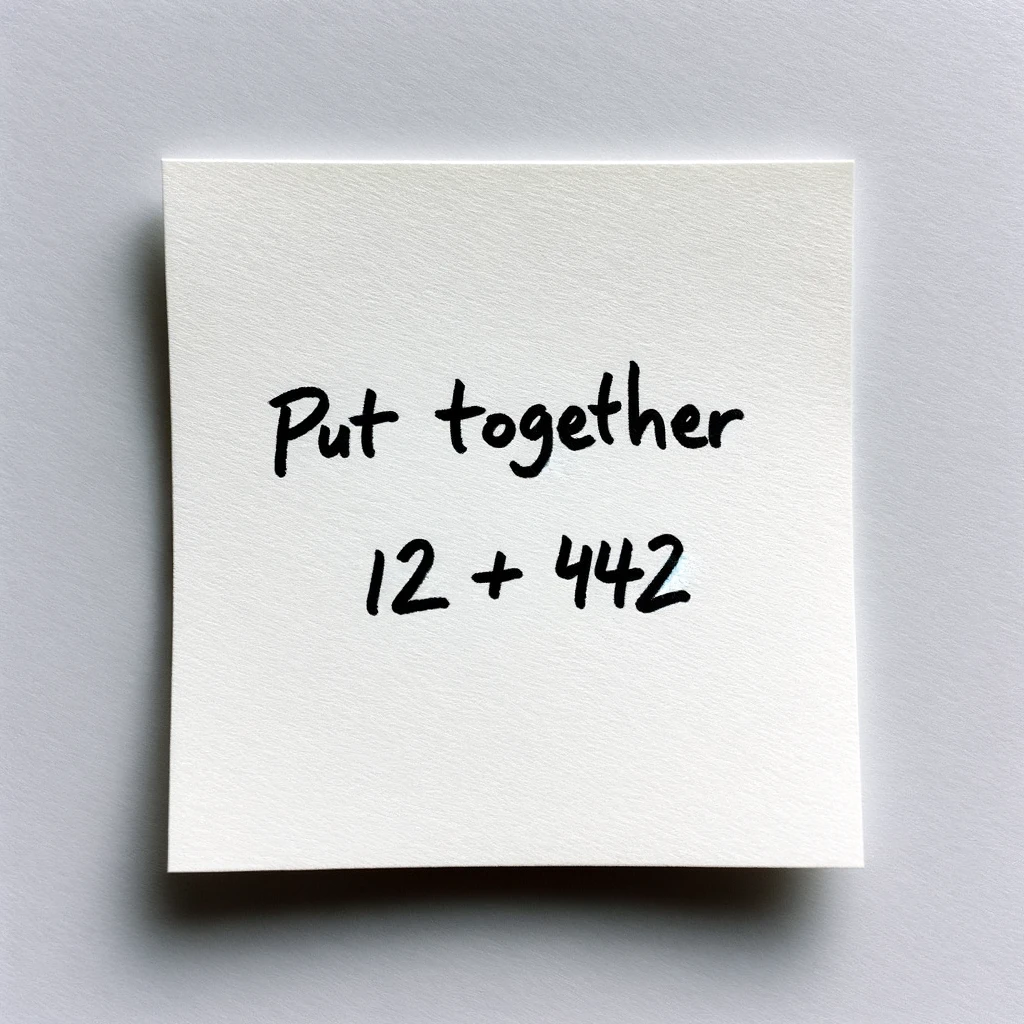 Put together
12 + 442